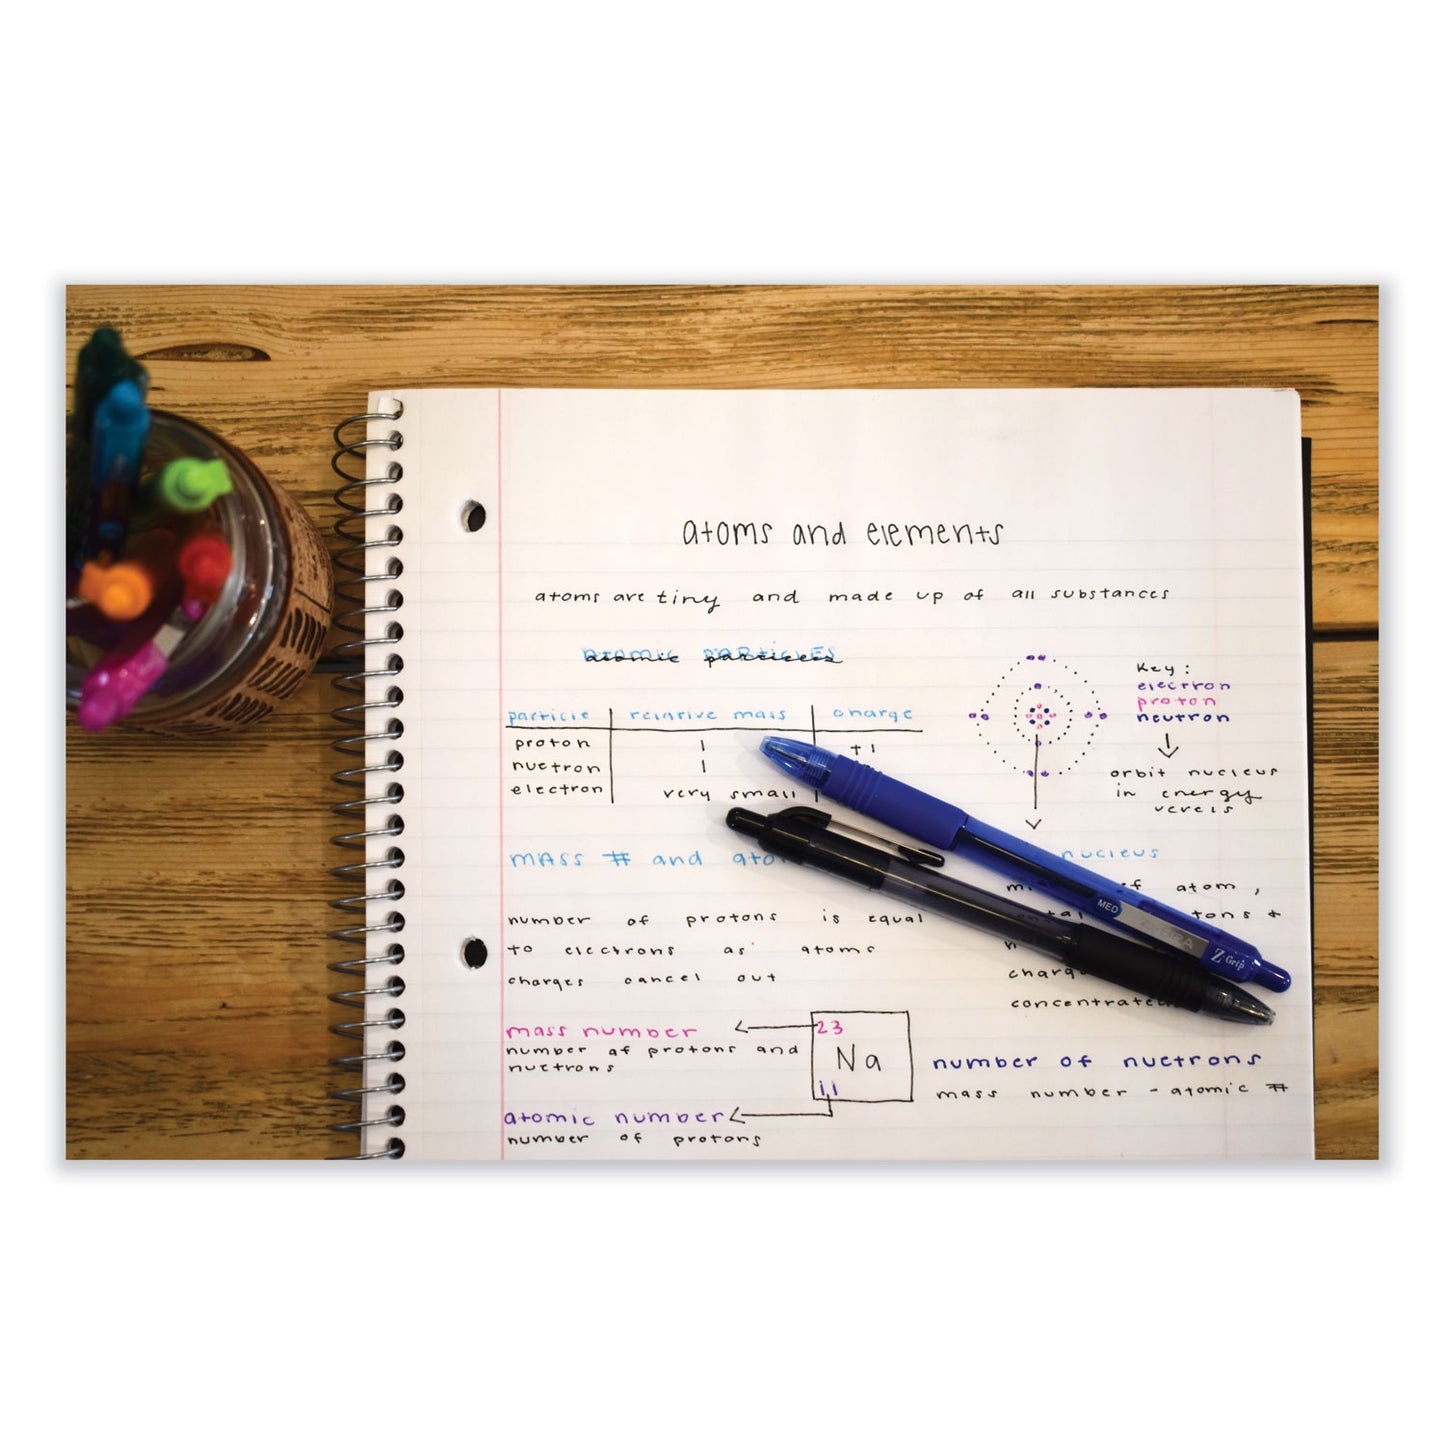 atoms and elements
atoms are tiny and made up of all substances
ATOMIC PARTICLES
atomic particles
particle relative mass charge
proton 1 +1
nuetron 1
electron very small
Key:
electron
proton
neutron
orbit nucleus
in energy
verels
MASS # and
nucleus
of atom,
number of protons is equal
to electrons as atoms
charges cancel out
concentrated
MED
ZEBRA
Z Grip
mass number
number of protons and
nuetrons
23
Na
11
atomic number
number of protons
number of nuetrons
mass number - atomic #